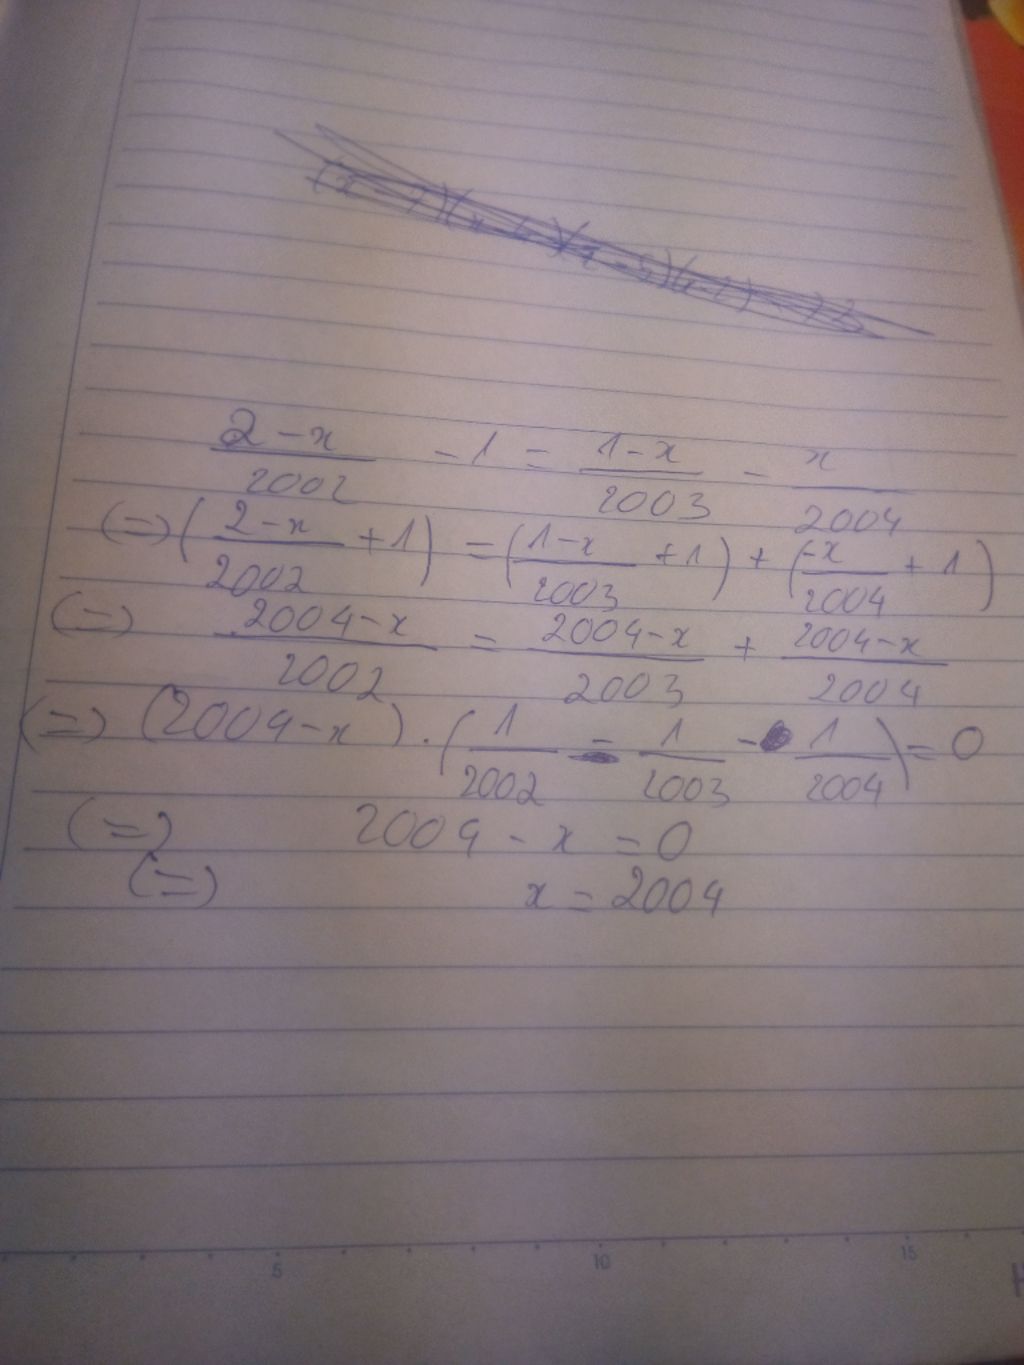 (x-7)(x-6)(x-5)(x-2)=72
2-x/2002 - 1 = 1-x/2003 - x/2004
(=) (2-x/2002 + 1) = (1-x/2003 + 1) + (-x/2004 + 1)
(=) 2004-x/2002 = 2004-x/2003 + 2004-x/2004
(=) (2004-x) . (1/2002 - 1/2003 - 1/2004) = 0
(=) 2004 - x = 0
(=) x = 2004
5 10 15
H